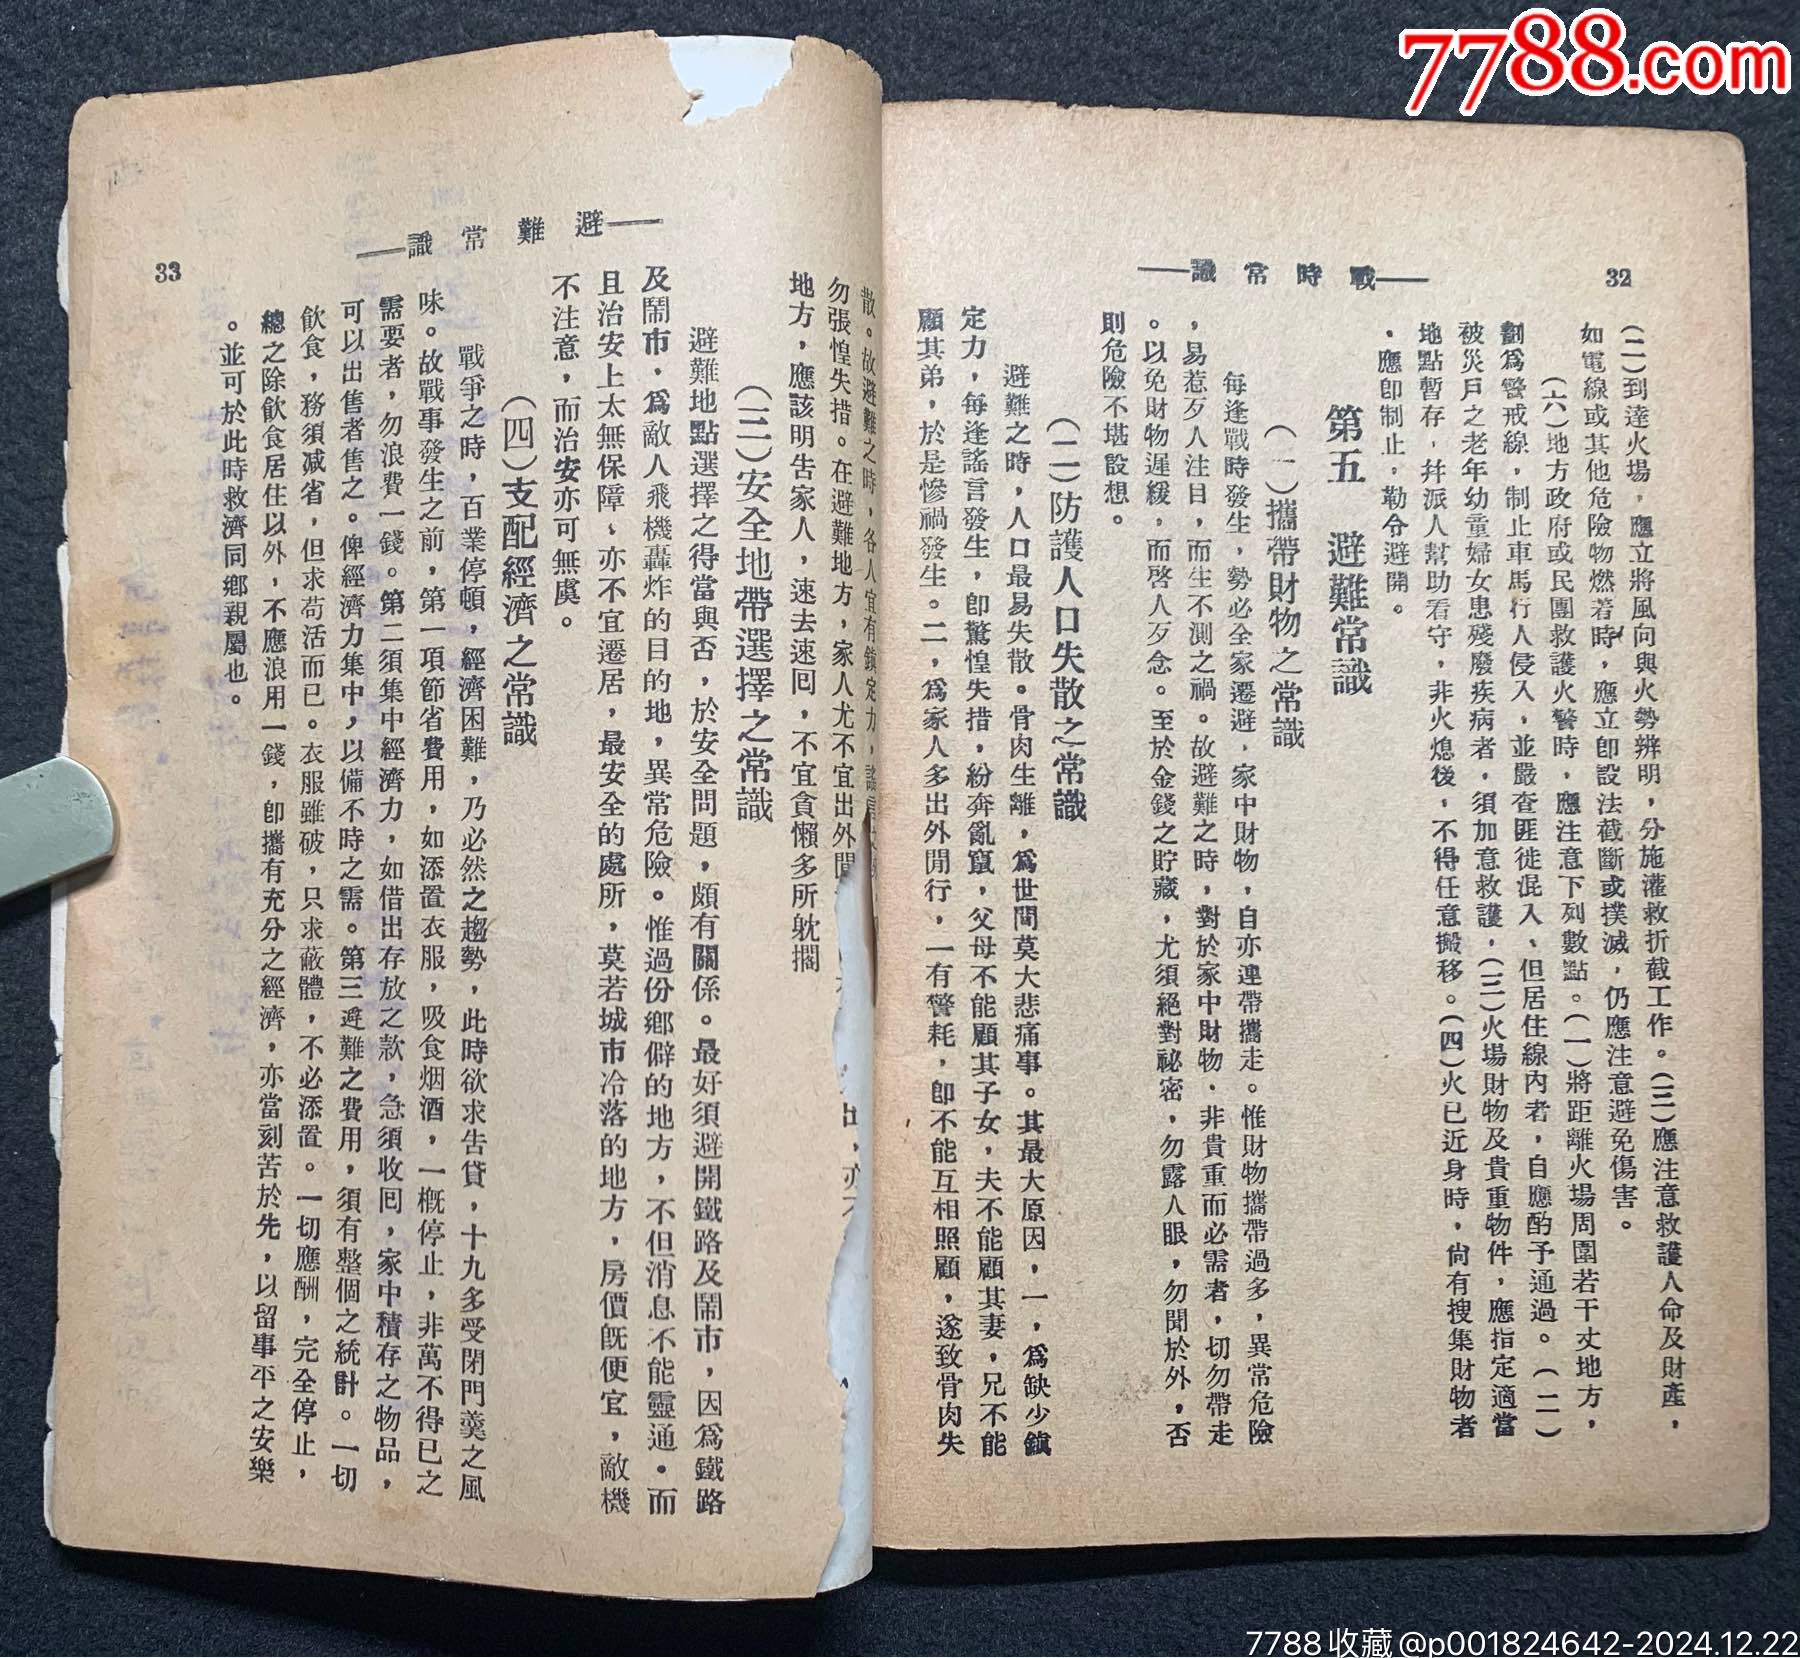 7788.com
32
——戰時常識——
(二)到達火場，應立將風向與火勢辨明，分施灌救折截工作。(三)應注意救護人命及財產，
如電線或其他危險物燃着時，應立卽設法截斷或撲滅，仍應注意避免傷害。
(六)地方政府或民團救護火警時，應注意下列數點。(一)將距離火場周圍若干丈地方，
劃爲警戒線，制止車馬行人侵入，並嚴查匪徒混入、但居住線內者，自應酌予通過。(二)
被災戶之老年幼童婦女患殘廢疾病者，須加意救護，(三)火場財物及貴重物件，應指定適當
地點暫存，幷派人幫助看守，非火熄後，不得任意搬移。(四)火已近身時，尙有搜集財物者
，應卽制止，勒令避開。
第五　避難常識
(一)攜帶財物之常識
每逢戰時發生，勢必全家遷避，家中財物，自亦連帶攜走。惟財物攜帶過多，異常危險
，易惹歹人注目，而生不測之禍。故避難之時，對於家中財物，非貴重而必需者，切勿帶走
。以免財物遲緩，而啓人歹念。至於金錢之貯藏，尤須絕對祕密，勿露人眼，勿聞於外，否
則危險不堪設想。
(二)防護人口失散之常識
避難之時，人口最易失散。骨肉生離，爲世間莫大悲痛事。其最大原因，一，爲缺少鎮
定力，每逢謠言發生，卽驚惶失措，紛奔亂竄，父母不能顧其子女，夫不能顧其妻，兄不能
顧其弟，於是慘禍發生。二，爲家人多出外閒行，一有警耗，卽不能互相照顧，遂致骨肉失
——避難常識——
33
散。故避難之時，各人宜有鎮定力，謠
勿張惶失措。在避難地方，家人尤不宜出外閒 出，亦不
地方，應該明告家人，速去速囘，不宜貪懶多所躭擱
(三)安全地帶選擇之常識
避難地點選擇之得當與否，於安全問題，頗有關係。最好須避開鐵路及鬧市，因爲鐵路
及鬧市，爲敵人飛機轟炸的目的地，異常危險。惟過份鄉僻的地方，不但消息不能靈通。而
且治安上太無保障、亦不宜遷居，最安全的處所，莫若城市冷落的地方，房價旣便宜，敵機
不注意，而治安亦可無虞。
(四)支配經濟之常識
戰爭之時，百業停頓，經濟困難，乃必然之趨勢，此時欲求告貸，十九多受閉門羹之風
味。故戰事發生之前，第一項節省費用，如添置衣服，吸食烟酒，一槪停止，非萬不得已之
需要者，勿浪費一錢。第二須集中經濟力，如借出存放之款，急須收囘，家中積存之物品，
可以出售者售之。俾經濟力集中，以備不時之需。第三避難之費用，須有整個之統計。一切
飮食，務須減省，但求苟活而已。衣服雖破，只求蔽體，不必添置。一切應酬，完全停止，
總之除飮食居住以外，不應浪用一錢，卽攜有充分之經濟，亦當刻苦於先，以留事平之安樂
。並可於此時救濟同鄉親屬也。
7788收藏@p001824642-2024.12.22